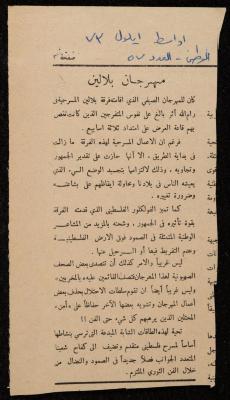 اواسط ايلول ٧٣
الوطن - العدد ٥٧
صفحة ٣
مهرجان بلالين
كان للمهرجان الصيفي الذي اقامته فرقة بلالين المسرحية في
رام الله أثر بالغ على نفوس المتفرجين الذين كانت تغص
بهم قاعة العرض على امتداد ثلاثة اسابيع .
فرغم ان الاعمال المسرحية لهذه الفرقة ما زالت
في بداية الطريق ، الا أنها حازت على تقدير الجمهور
وتجاوبه ، وذلك لالتزامها بتجسيد الوضع السيء الذي
يعيشه الناس في بلادنا ومحاولة ايقاظهم على بشاعته
وضرورة تغييره .
كما تميز الفولكلور الفلسطيني الذي قدمته الفرقة
بقوة تأثيره في الجمهور ، وشحنه بالمزيد من المشاعر
الوطنية المتمثلة في الصمود فوق الارض الفلسطينية
وعدم التفريط فيها أو الرحيل عنها .
ليس غريباً والامر كذلك أن تتصدى بعض الصحف
الصهيونية لهذا المهرجان فتصف القائمين عليه بالمخربين
وليس غريباً أيضاً أن تقوم سلطات الاحتلال بحذف بعض
أعمال المهرجان وتشويه بعضها الآخر حفاظاً على « أمن »
المحتلين الذين يرهبهم كل شيء حتى الفن !!
تحية لهذه الطاقات الشابة المبدعة التي ترسي بنشاطها
أساساً لمسرح فلسطيني متقدم وتضيف الى كفاح شعبنا
المتعدد الجوانب فصلاً جديداً في الصمود والنضال من
خلال الفن الثوري الملتزم .